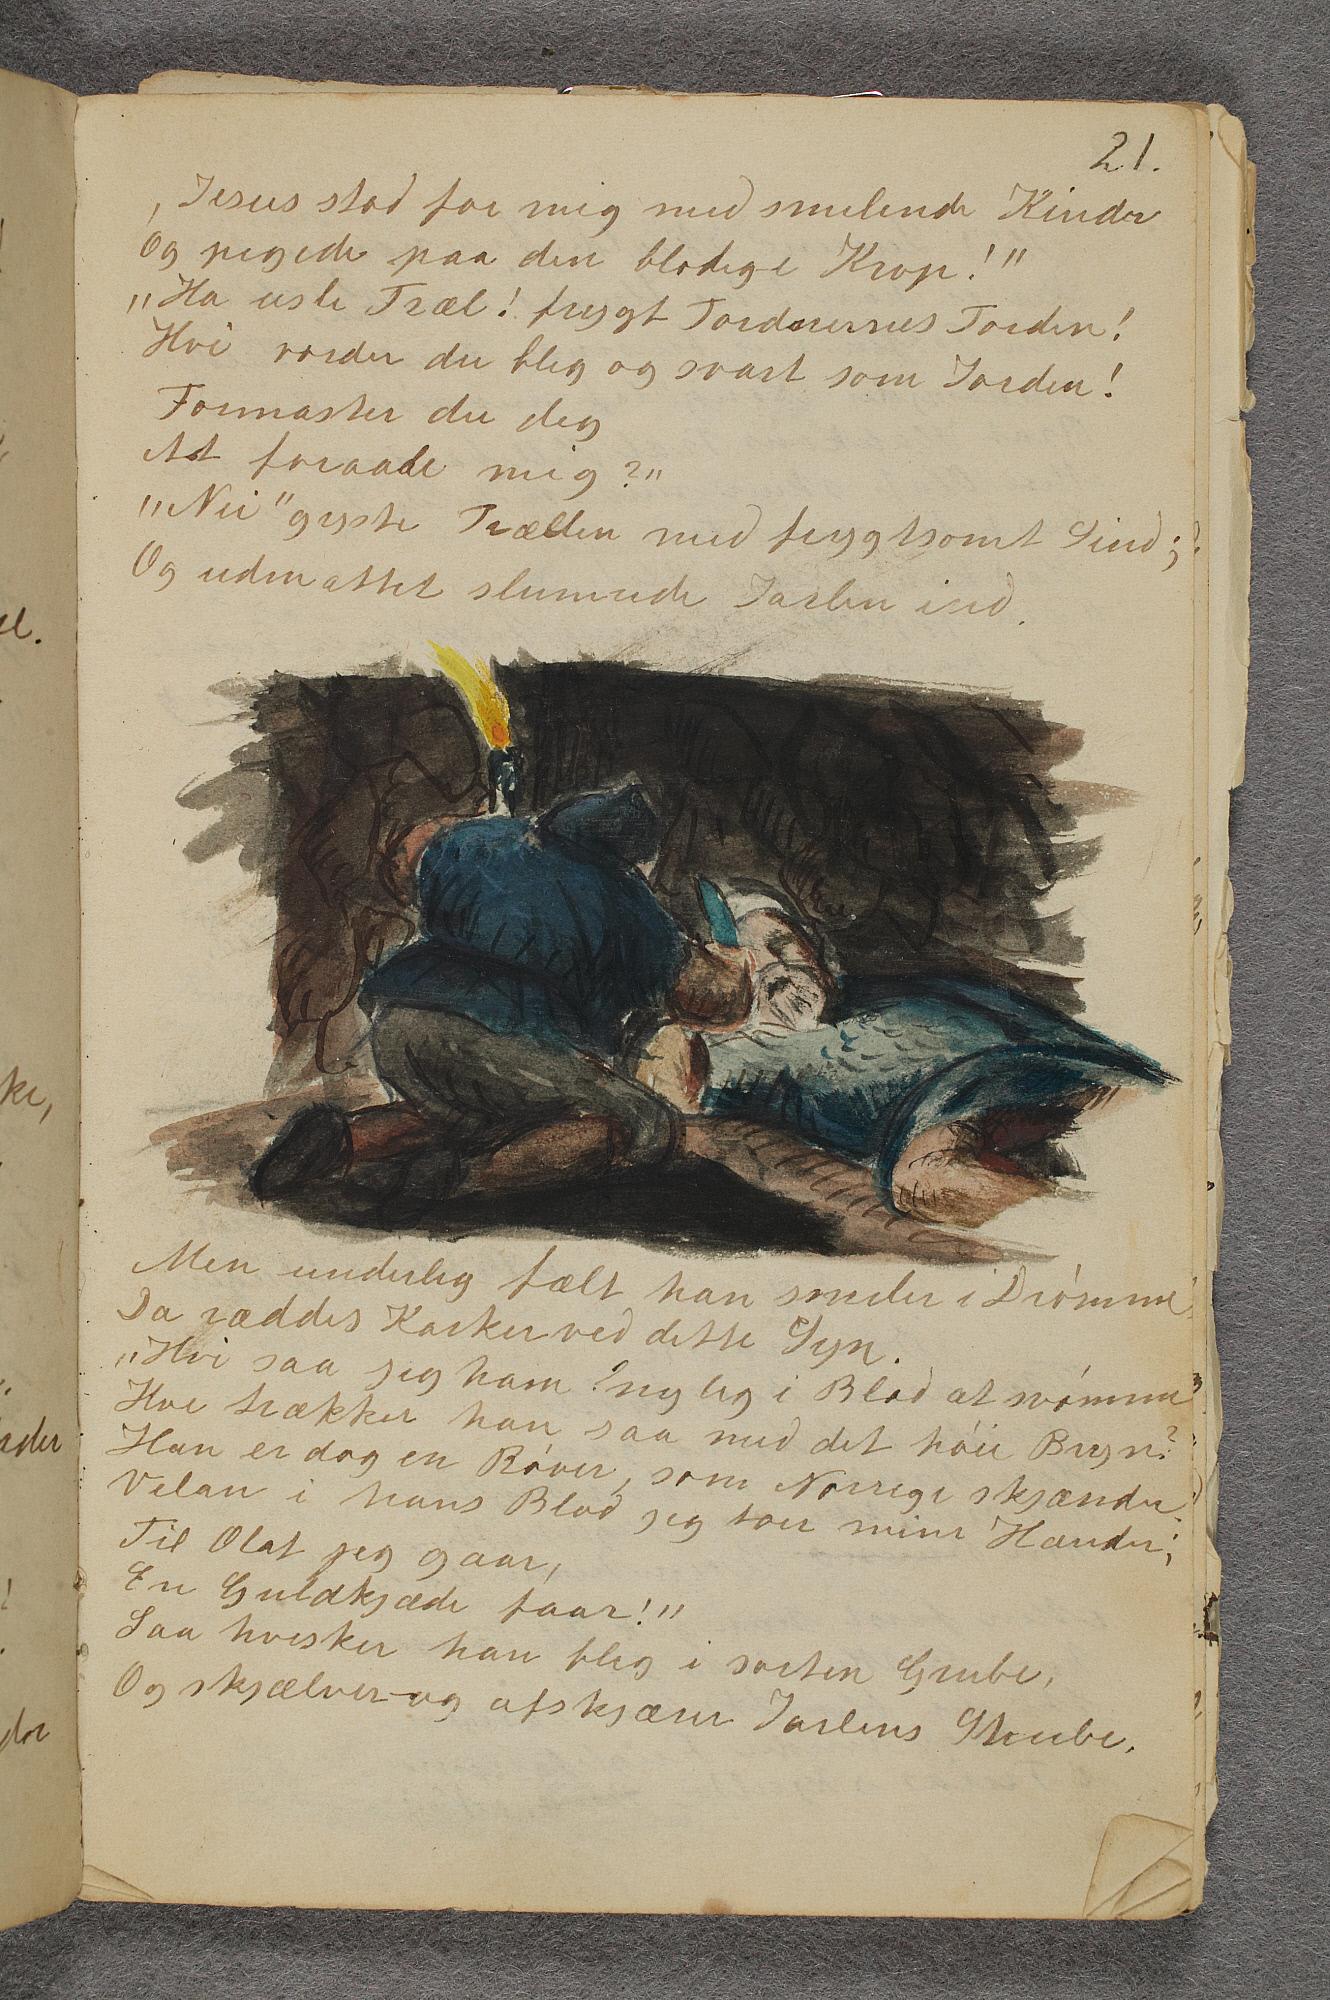 21.
„Jesus stod for mig med smilende Kinder
Og pegede paa den blodige Krop!"
„Ha usle Træl! frygt Tordnernes Torden!
Hvi vorder du bleg og svart som Jorden!
Formaster du dig
At foraade mig?"
„Nei" gyste Trællen med frygtsomt Sind;
Og udmattet slumrede Jarlen ind.
Men underlig fælt han smiler i Drømme
Da ræddes Karker ved dette Syn.
„Hvi saa jeg ham nylig i Blod at svømme
Hve trækker han saa med det høie Bryn?
Han er dog en Røver, som Norrige skjænder.
Velan i hans Blod jeg toer mine Hænder;
Til Olaf jeg gaar,
En Guldkjæde faar!"
Saa hvisker han bleg i sorten Grube,
Og skjælver og afskjærer Jarlens Strube.